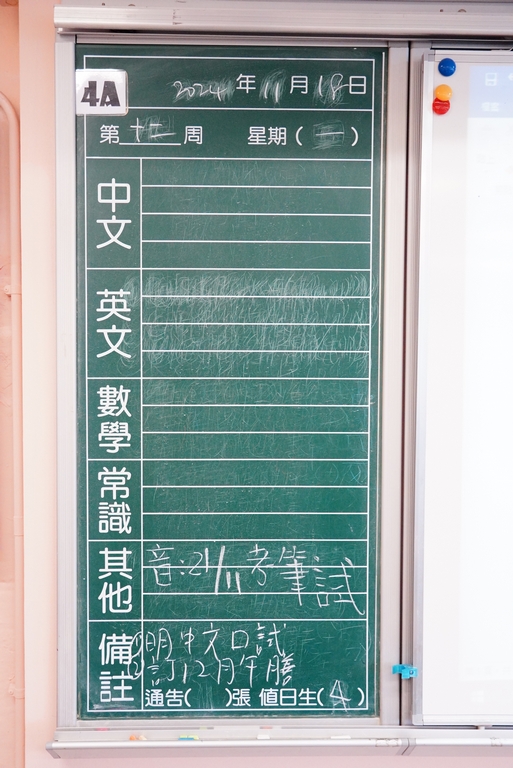 4A
2024年11月18日
第十二周 星期(一)
中文
英文
數學
常識
其他
音:21/11考筆試
備註
①明中文口試
②訂12月午膳
通告( )張 值日生(4)